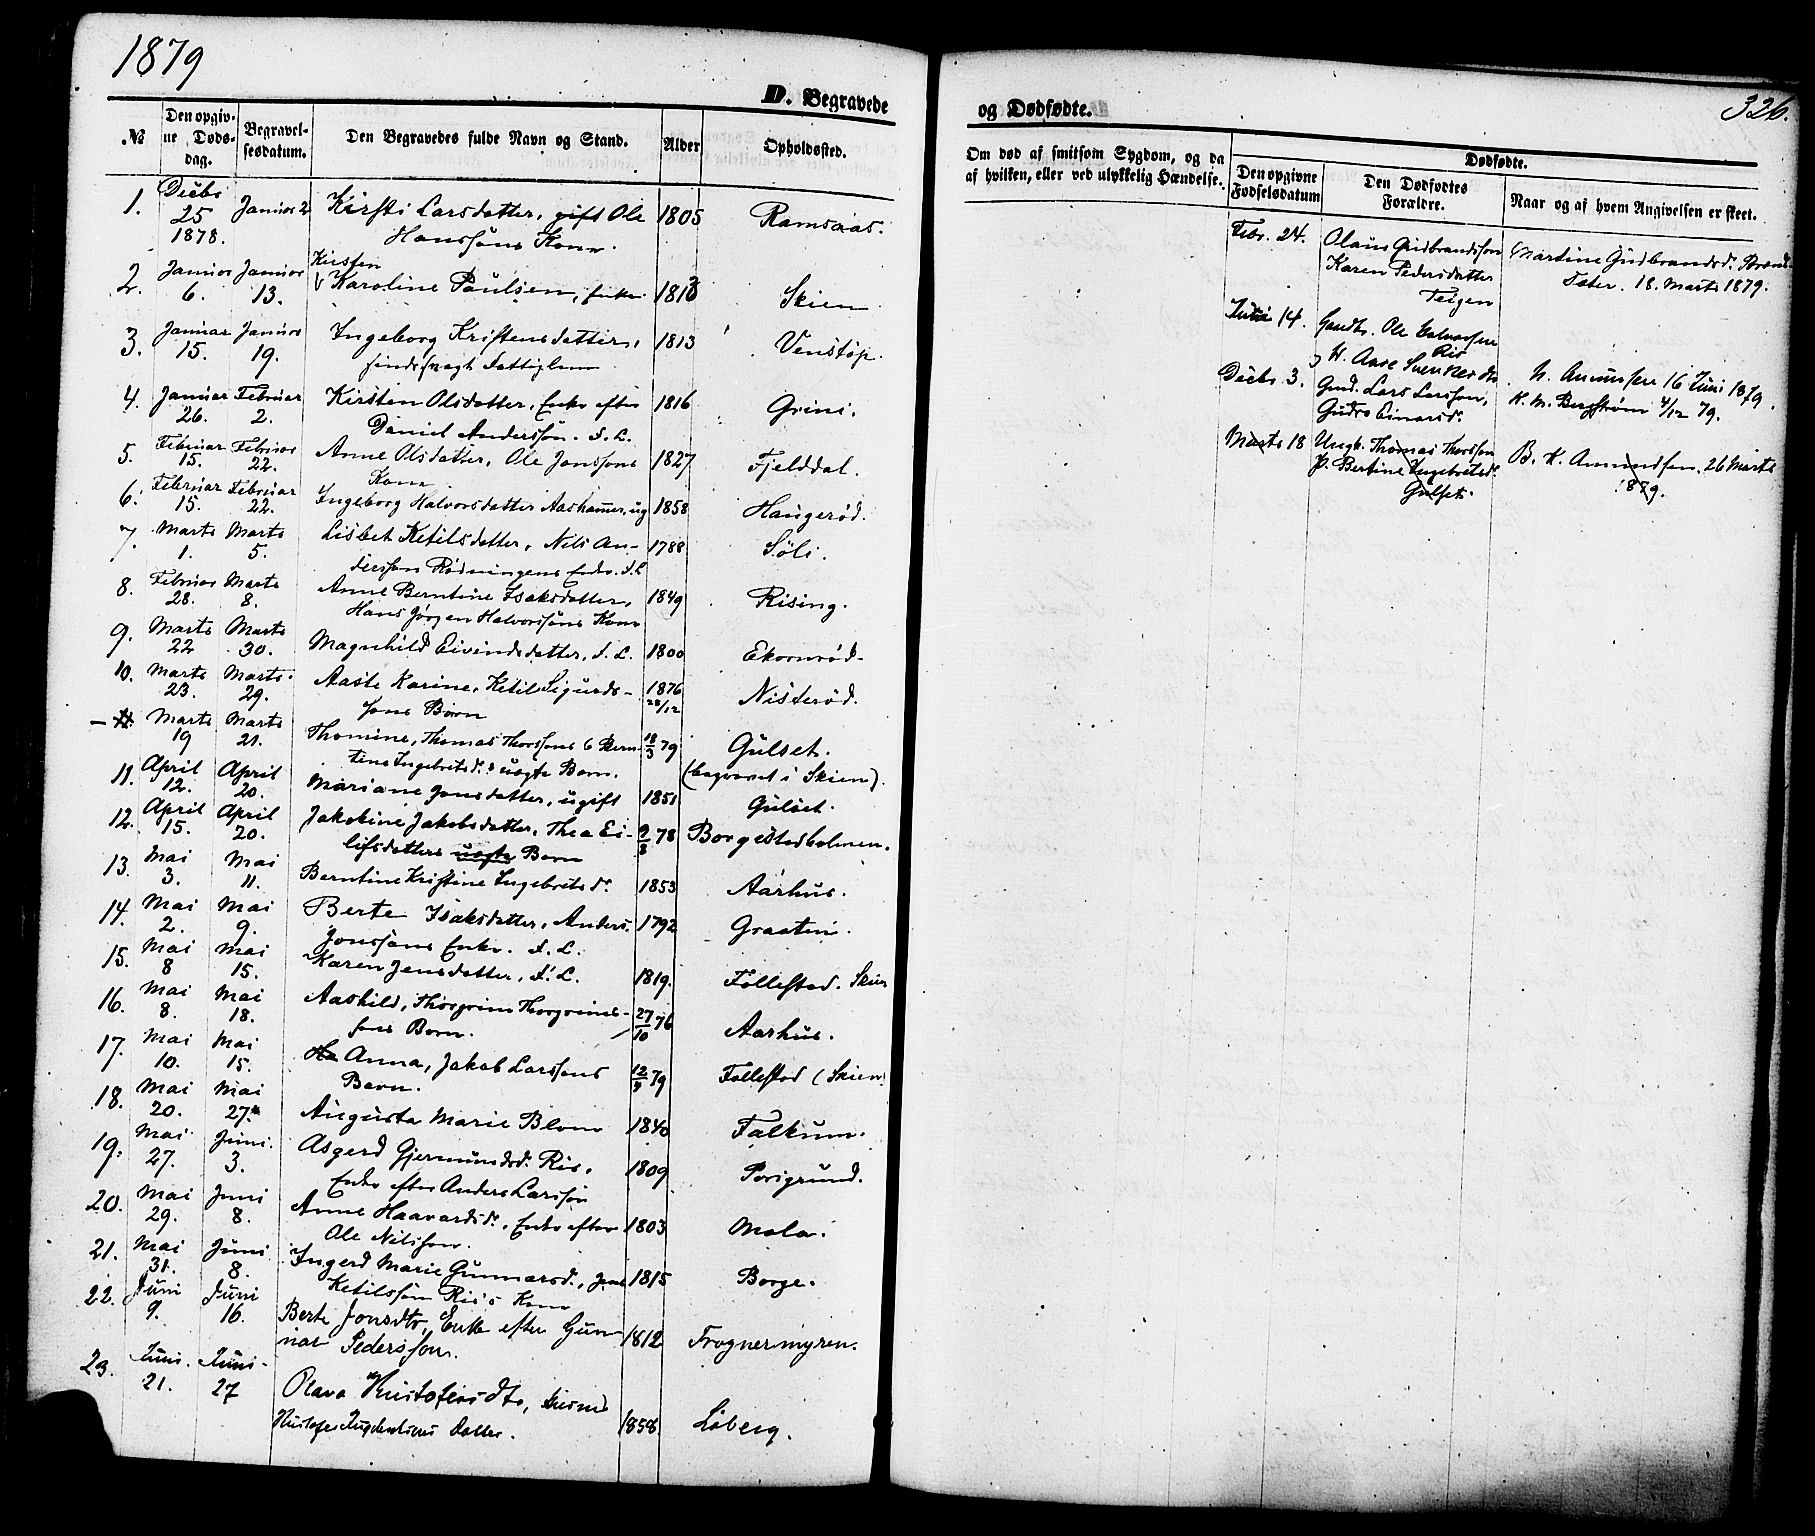 1879
D. Begravede
№ Den opgivne Dødsdag. Begravelsesdatum. Den Begravedes fulde Navn og Stand. Alder Opholdssted.
1. Decbr 25 1878. Januar 2 Kirsti Larsdatter, gift Ole 1805 Ramsaas.
Hanssøns Kone.
Kirsten
2. Januar 6. Januar 13. Karoline Paulsen, Enke 1813 Skien
3. Januar 15. Januar 19. Ingeborg Kristensdatter, 1813 Venstøp.
sindssvagt Fattiglem
4. Januar 26. Februar 2. Kirsten Olsdatter, Enke efter 1816 Grini.
Daniel Anderssøn. F. L.
5. Februar 15. Februar 22. Anne Olsdatter, Ole Jonssøns 1827 Fjelddal.
Kone
6. Februar 15. Februar 22. Ingeborg Halvorsdatter Aashammer, ug 1858 Haugerød.
7. Marts 1. Marts 5. Lisbet Ketilsdatter, Nils An- 1788 Søli.
derssøn Rødningens Enke. F. L
8. Februar 28. Marts 8. Anne Berntine Isaksdatter, 1849 Rising.
Hans Jørgen Halvorssøns Kone
9. Marts 22 Marts 30. Magnhild Eivindsdatter, F. L. 1800 Ekornrød.
10. Marts 23. Marts 29. Aaste Karine, Ketil Sigurds- 1876 28/12 Nisterød.
søns Barn
Marts 19 Marts 21. Thomine, Thomas Thorssøns & Bern- 18/3 79 Gulset.
tine Ingebretsd.s uægte Barn. (begravet i Skien).
11. April 12. April 20. Mariane Jonsdatter, ugift 1851 Gulset.
12. April 15. April 20. Jakobine Jakobsdatter, Thea Ei- 9/8 78 Borgestadholmen.
lifsdatters uægte Barn
13. Mai 3. Mai 11. Berntine Kristine Ingebretsd. 1853 Aarhus.
14. Mai 2. Mai 9. Berte Isaksdatter, Anders 1792 Graaten.
Jonssøns Enke. F. L.
15. Mai 8 Mai 15. Karen Jensdatter, F. L. 1819. Follestad. Skien
16. Mai 8. Mai 18. Aashild, Thorgrim Thorgrims- 27/10 76 Aarhus.
søns Barn.
17. Mai 10. Mai 15. Anna, Jakob Larssøns 12/3 79 Follestad (Skien)
Barn.
18. Mai 20. Mai 27. Augusta Marie Blom 1840 Falkum.
19. Mai 27. Juni 3. Asgerd Gjermundsd. Ris, 1809 Porsgrund.
Enke efter Anders Larssøn
20. Mai 29. Juni 8. Anne Haavardsd., Enke efter 1803 Mela.
Ole Nilssøn.
21. Mai 31. Juni 8. Ingerd Marie Gunnarsd., Jens 1815 Borge.
Ketilssøn Ris's Kone
22. Juni 9. Juni 16. Berte Jonsdtr, Enke efter Gun- 1812 Frognermyren.
nar Pederssøn.
23. Juni 21. Juni 27 Olava Kristofersdtr,
Kristofer Datter. 1858. Løberg.
og Dødfødte.
326.
Om død af smitsom Sygdom, og da af hvilken, eller ved ulykkelig Hændelse.
Dødfødte.
Den opgivne Fødselsdatum Den Dødfødtes Forældre. Naar og af hvem Angivelsen er skeet.
Febr. 24. Olaus Gudbrandssøn Martine Gudbrandsd.
Karen Pedersdatter 18. Marts 1879.
Teigen
Juni 14. Gaardbr. Ole Halvorsen
Ris
H. Aase Svensdr N. Amundsen 16 Juni 1879.
Decbr. 3. Gmd. Lars Larssøn, K. M. Bergstrøm 4/12 79.
Gudro Einarsd.
Marts 18 Ungk. Thomas Thorssøn B. K. Amundsen. 26 Marts
P. Bertine Ingebretsd. 1879.
Gulset.